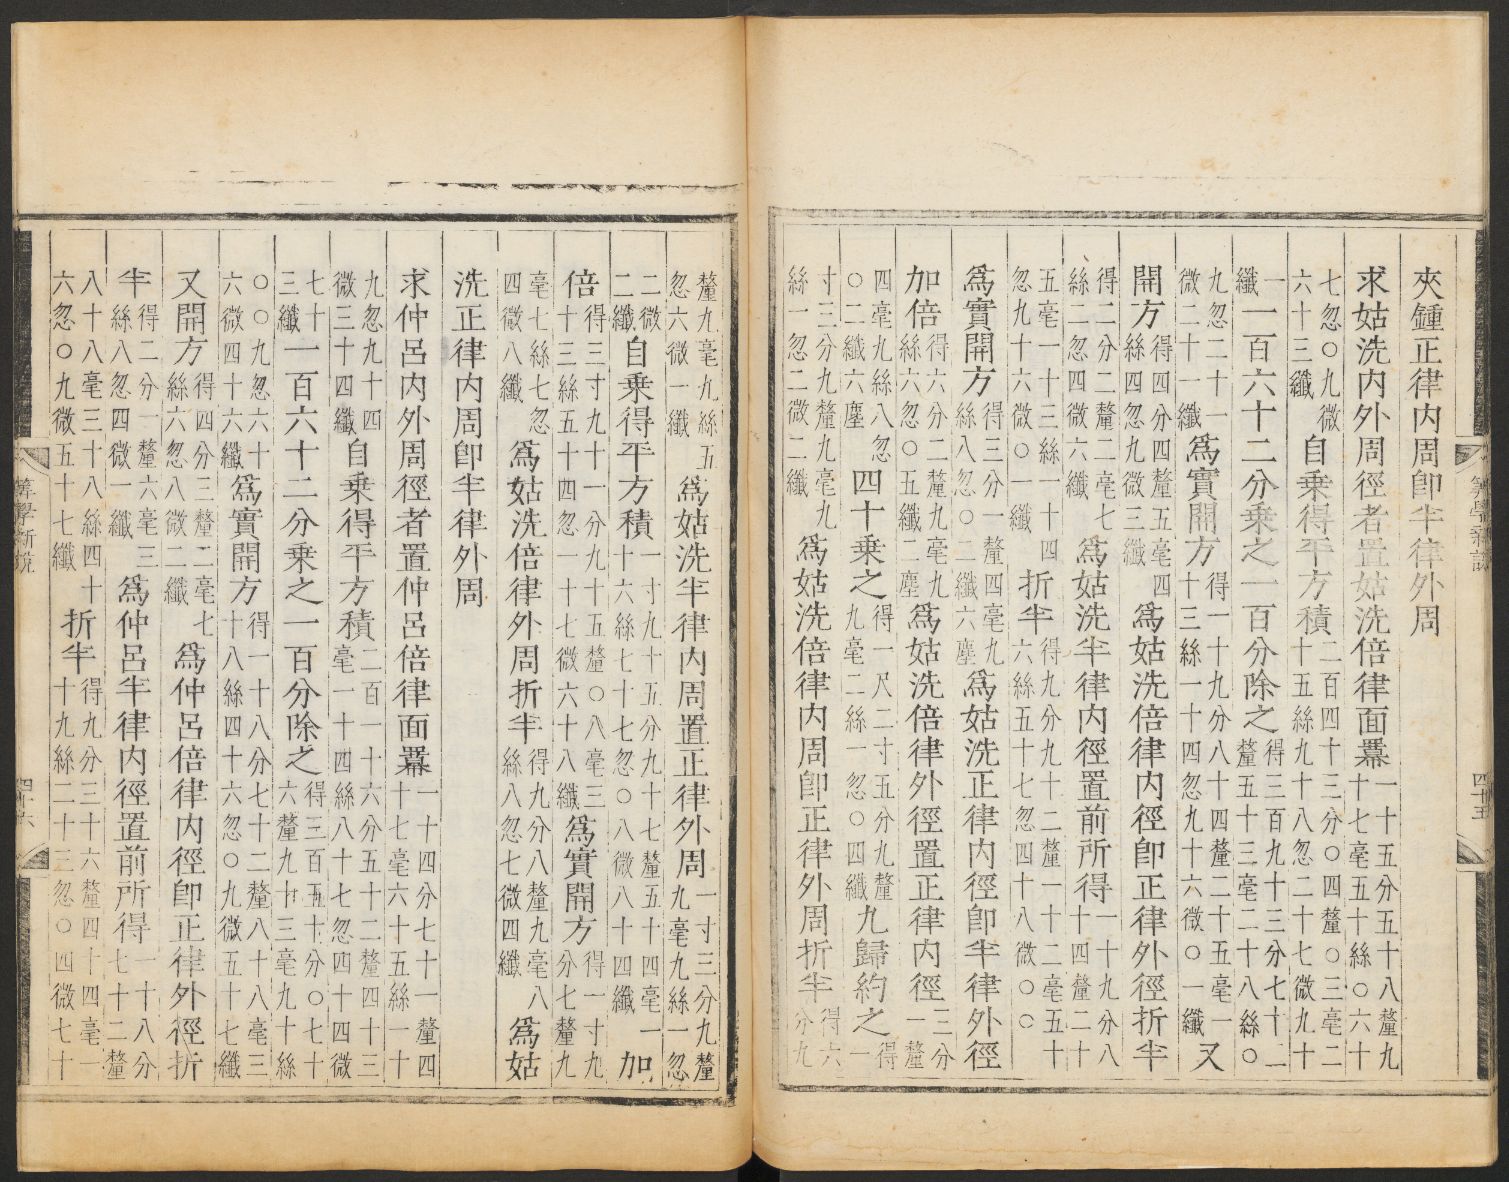 夾鍾正律內周卽半律外周
求姑洗內外周徑者置姑洗倍律面冪一十五分五十八釐九十七毫五十絲〇六十
七忽〇九微六十三纖自乘得平方積二百四十三分〇四釐〇三毫二十五絲九十八忽二十七微九十
一纖一百六十二分乘之一百分除之得三百九十三分七十二釐五十三毫二十八絲〇
九忽二十一微二十一纖為實開方得一十九分八十四釐二十五毫一十三絲一十四忽九十六微〇一纖又
開方得四分四釐五毫四絲四忽九微三纖為姑洗倍律內徑卽正律外徑折半
得二分二釐二毫七絲二忽四微六纖為姑洗半律內徑置前所得一十九分八十四釐二十
五毫一十三絲一十四忽九十六微〇一纖折半得九分九十二釐一十二毫五十六絲五十七忽四十八微〇〇
為實開方得三分一釐四毫九絲八忽〇二纖六塵為姑洗正律內徑卽半律外徑
加倍得六分二釐九毫九絲六忽〇五纖二塵為姑洗倍律外徑置正律內徑三分一釐
四毫九絲八忽〇二纖六塵四十乘之得一尺二寸五分九釐九毫二絲一忽〇四纖九歸約之得一
寸三分九釐九毫九絲一忽二微二纖為姑洗倍律內周卽正律外周折半得六分九
算學新說 四十五
釐九毫九絲五忽六微一纖為姑洗半律內周置正律外周一寸三分九釐九毫九絲一忽
二微二纖自乘得平方積一寸九十五分九十七釐五十四毫一十六絲七十七忽〇八微八十四纖加
倍得三寸九十一分九十五釐〇八毫三十三絲五十四忽一十七微六十八纖為實開方得一寸九分七釐九
毫七絲七忽四微八纖為姑洗倍律外周折半得九分八釐九毫八絲八忽七微四纖為姑
洗正律內周卽半律外周
求仲呂內外周徑者置仲呂倍律面冪一十四分七十一釐四十七毫六十五絲一十
九忽九十四微三十四纖自乘得平方積二百一十六分五十二釐四十三毫一十四絲八十七忽四十四微
七十三纖一百六十二分乘之一百分除之得三百五十分〇七十六釐九十三毫九十絲
〇〇九忽六十六微四十六纖為實開方得一十八分七十二釐八十八毫三十八絲四十六忽〇九微五十七纖
又開方得四分三釐二毫七絲六忽八微二纖為仲呂倍律內徑卽正律外徑折
半得二分一釐六毫三絲八忽四微一纖為仲呂半律內徑置前所得一十八分七十二釐
八十八毫三十八絲四十六忽〇九微五十七纖折半得九分三十六釐四十四毫一十九絲二十三忽〇四微七十
算學新說 四十六